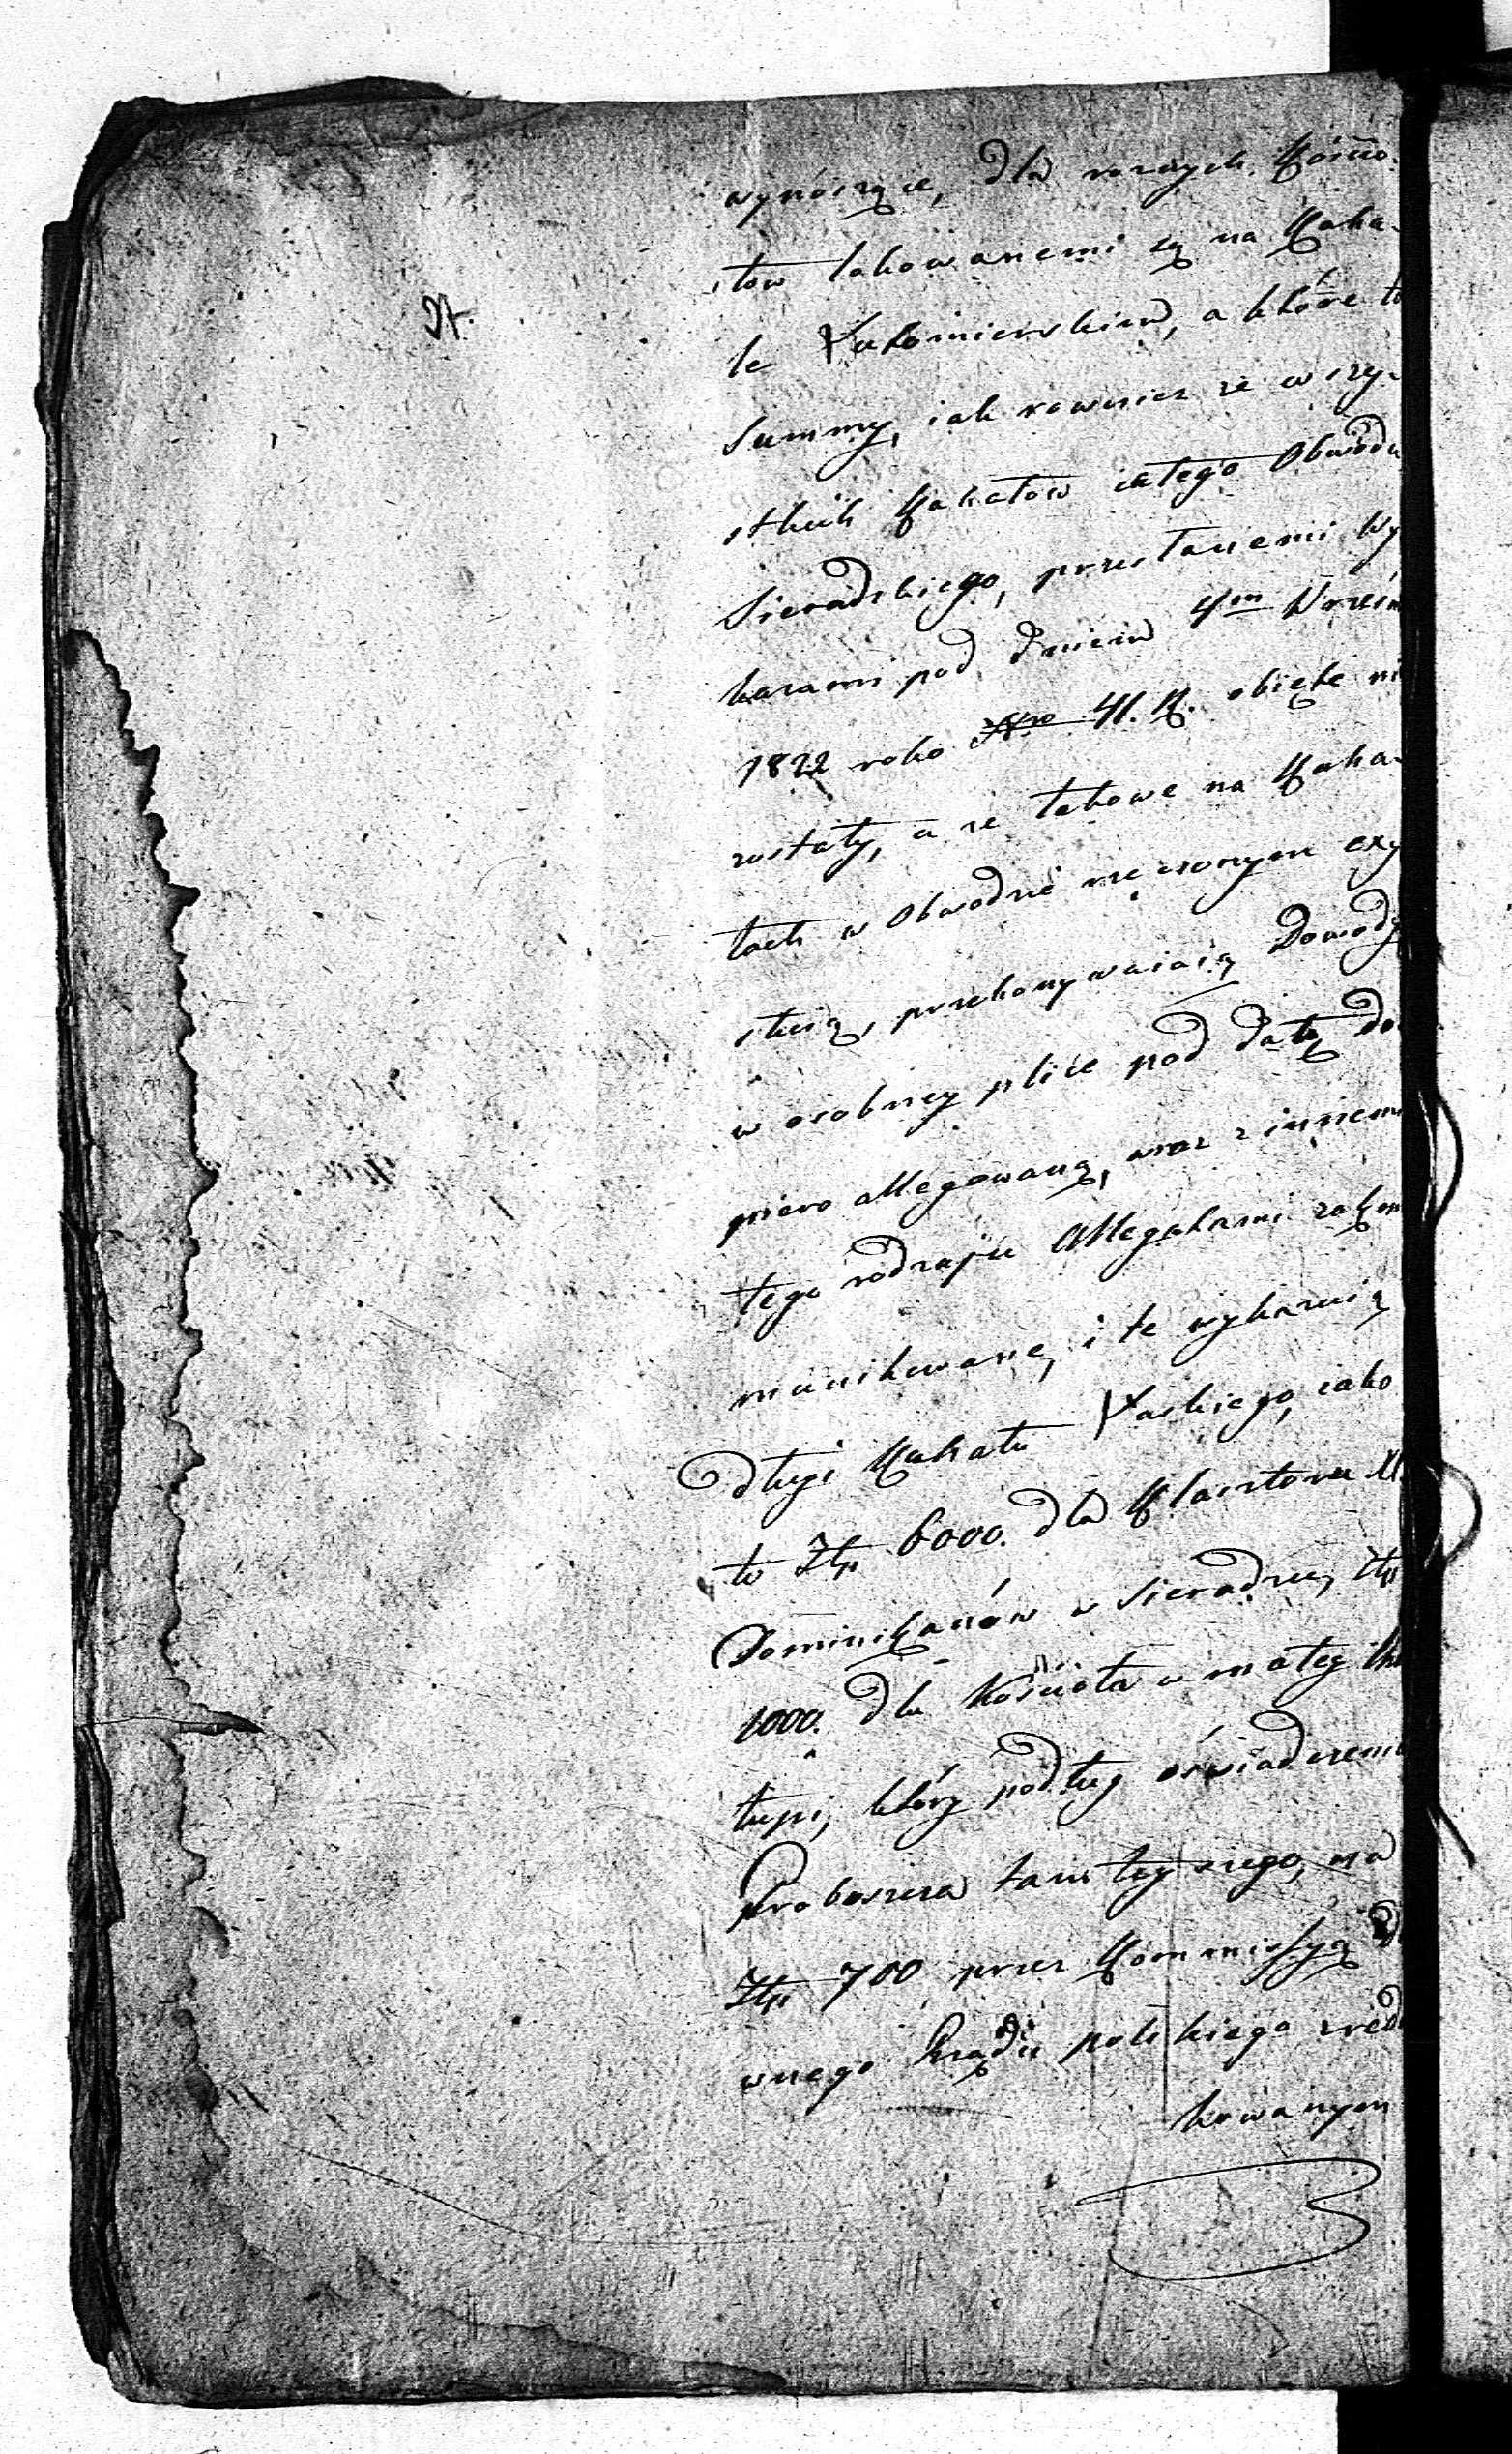 wynoszące, dla roznych Kościo-
łow lokowanemi są na Kaha-
le Lutomierskim, a które to
Summy, iak rownież ze wszy-
stkich Kahałow całego Obwodu
Sieradzkiego, przesłanemi Wy
kazami pod Dniem 4m Wrześn
1822 roko Nro 41. R. obięte ni
zostały, a że takowe na Kaha-
łach w Obwodzie rzeczonym exy
stuią, przekonywaiaią Dowody
w osobney plice pod datą do-
piero allegowaną, wraz z innemi
tego rodzaju Allegatami zakom
munikowane, i te wykazuią
Długi Kahału Łaskiego, iako
to Złp 6000. dla Klasztoru XX.
Dominikanów w Sieradzu, Złp
1000. dla Kościoła w małey
łupi, który podług oświadczeni
Proboszcza tamteyszego, na
Złp 700 przez Kommissyą D
wnego Rządu polskiego zred
kowanym